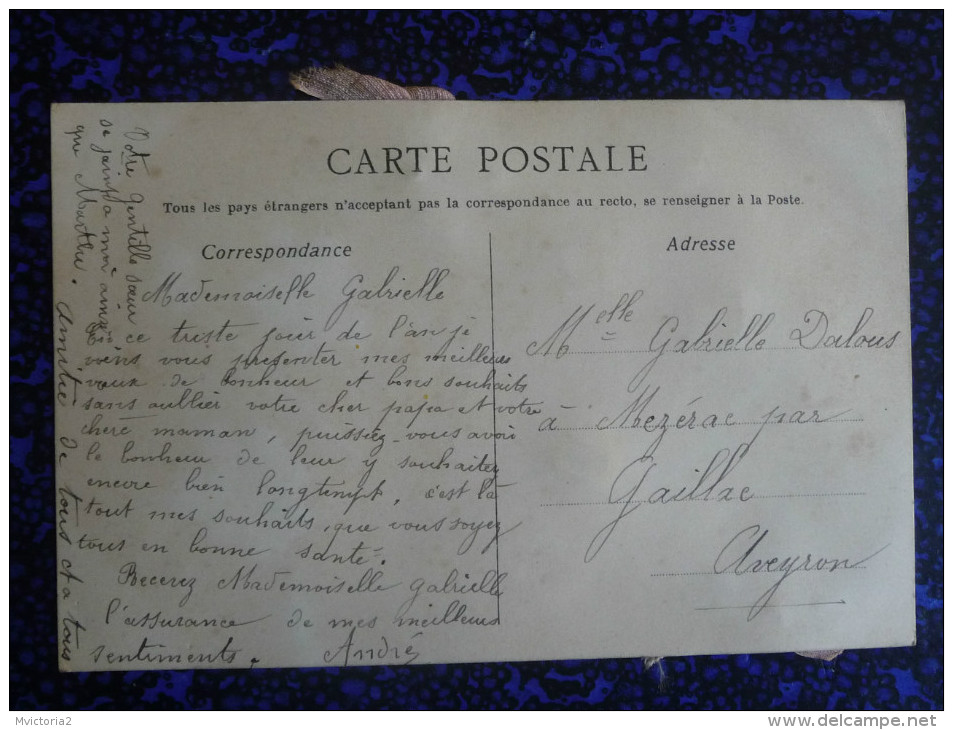 CARTE POSTALE
Tous les pays étrangers n'acceptent pas la correspondance au recto, se renseigner à la Poste.
Correspondance
Mademoiselle Gabrielle
En ce triste jour de l'an je
viens vous presenter mes meilleurs
vœux de bonheur et bons souhaits
sans oullier votre cher papa et votre
chere maman, puissiez-vous avoir
le bonheur de leur y souhaitez
encore bien longtempt, c'est là
tout mes souhaits, que vous soyez
tous en bonne santé.
Recerez Mademoiselle Gabrielle
l'assurance de mes meilleurs
sentiments. André
Votre Gentille sœur
se joint a moi ainsi
que Marthe.
Amitié de tous et a tous
Adresse
Melle Gabrielle Dalous
à Mezérac par
Gaillac
Aveyron
Mvictoria2
http://www.delcampe.net